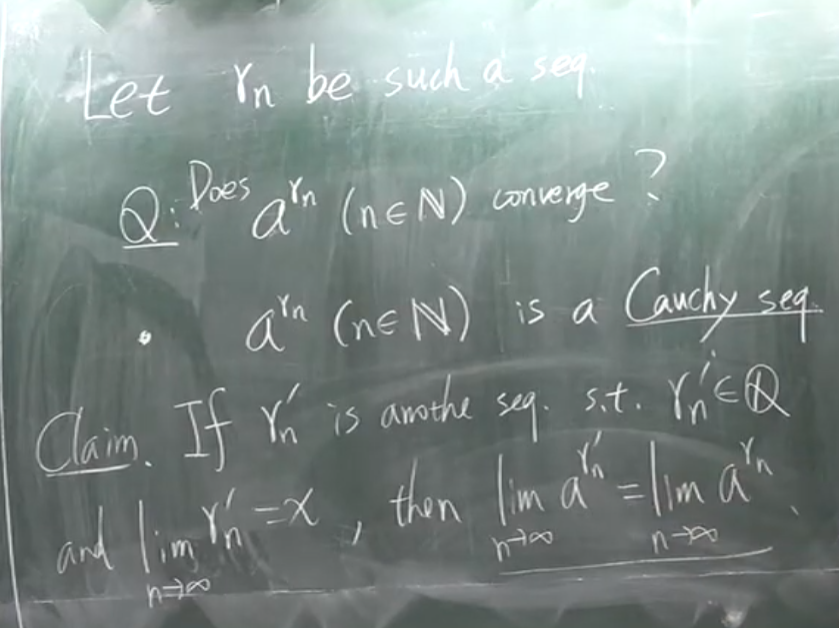 Let rₙ be such a seq.
Q: Does a^{rₙ} (n∈ℕ) converge?
• a^{rₙ} (n∈ℕ) is a Cauchy seq.
Claim. If rₙ′ is anothe seq. s.t. rₙ′∈ℚ
and lim_{n→∞} rₙ′ = x, then lim_{n→∞} a^{rₙ′} = lim_{n→∞} a^{rₙ}.